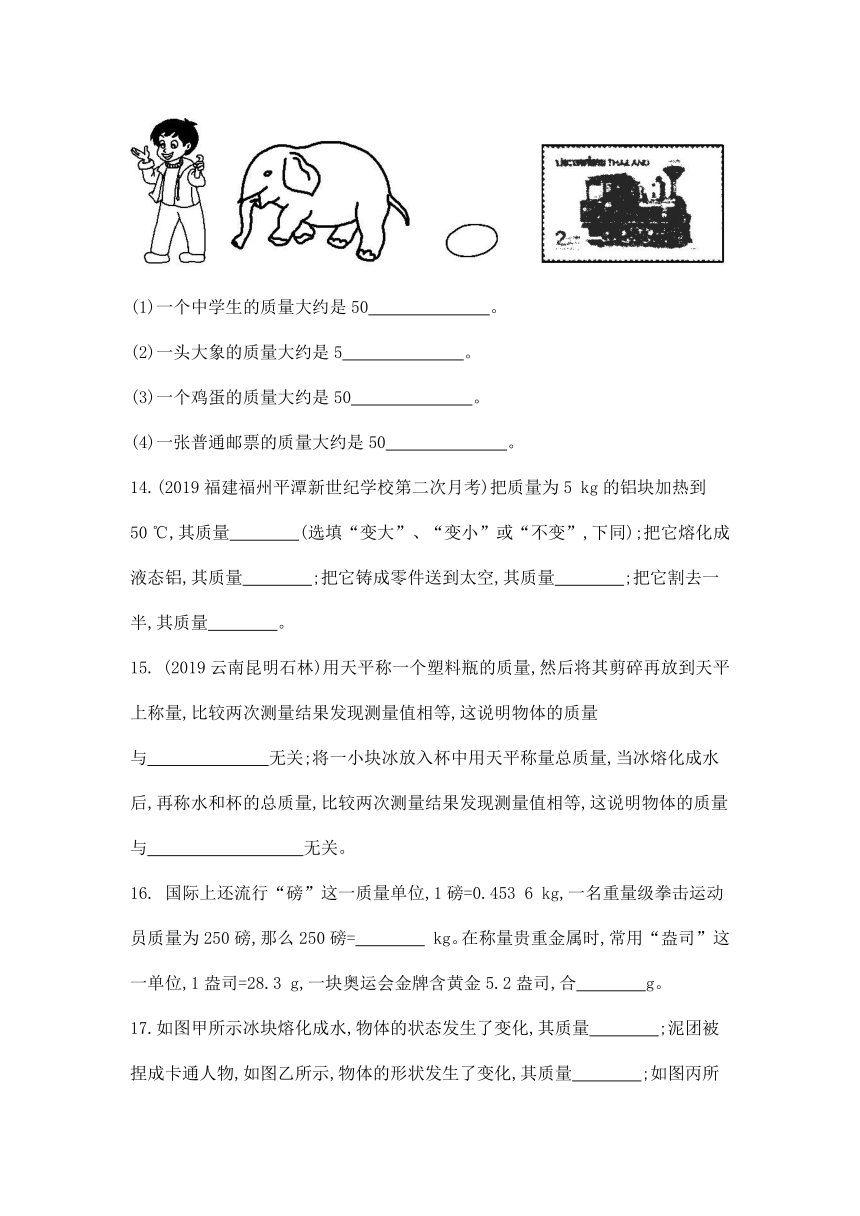 THAILAND
2
(1)一个中学生的质量大约是50 。
(2)一头大象的质量大约是5 。
(3)一个鸡蛋的质量大约是50 。
(4)一张普通邮票的质量大约是50 。
14.(2019福建福州平潭新世纪学校第二次月考)把质量为5 kg的铝块加热到
50 ℃,其质量 (选填“变大”、“变小”或“不变”,下同);把它熔化成
液态铝,其质量 ;把它铸成零件送到太空,其质量 ;把它割去一
半,其质量 。
15. (2019云南昆明石林)用天平称一个塑料瓶的质量,然后将其剪碎再放到天平
上称量,比较两次测量结果发现测量值相等,这说明物体的质量
与 无关;将一小块冰放入杯中用天平称量总质量,当冰熔化成水
后,再称水和杯的总质量,比较两次测量结果发现测量值相等,这说明物体的质量
与 无关。
16. 国际上还流行“磅”这一质量单位,1磅=0.453 6 kg,一名重量级拳击运动
员质量为250磅,那么250磅= kg。在称量贵重金属时,常用“盎司”这
一单位,1盎司=28.3 g,一块奥运会金牌含黄金5.2盎司,合 g。
17.如图甲所示冰块熔化成水,物体的状态发生了变化,其质量 ;泥团被
捏成卡通人物,如图乙所示,物体的形状发生了变化,其质量 ;如图丙所